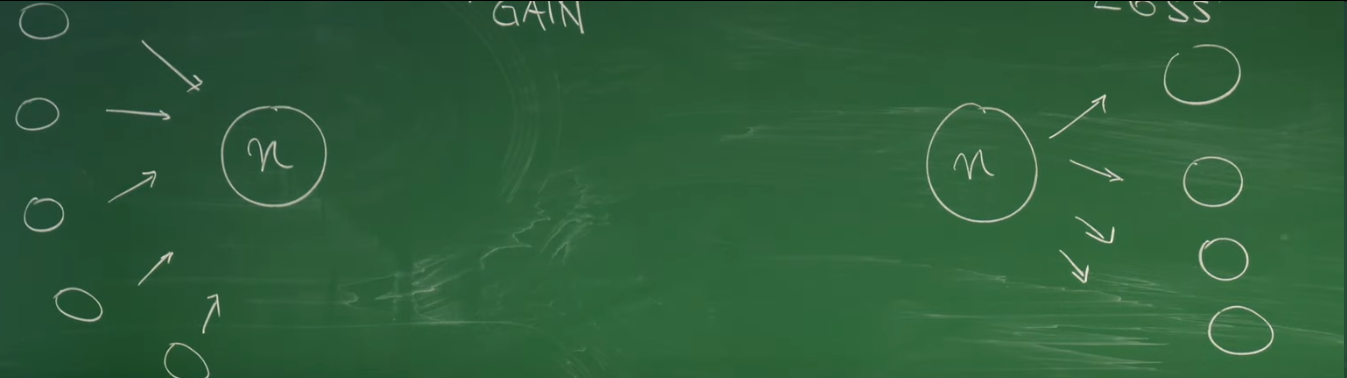 GAIN
LOSS
n
n